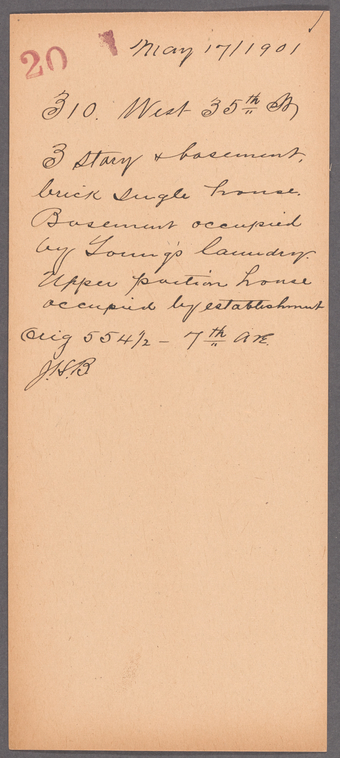 20
May 17/1901
310. West 35th St
3 story & basement,
brick single house.
Basement occupied
by Young's laundry.
Upper portion house
occupied by establishment
Orig 554½ - 7th Ave.
J.S.B